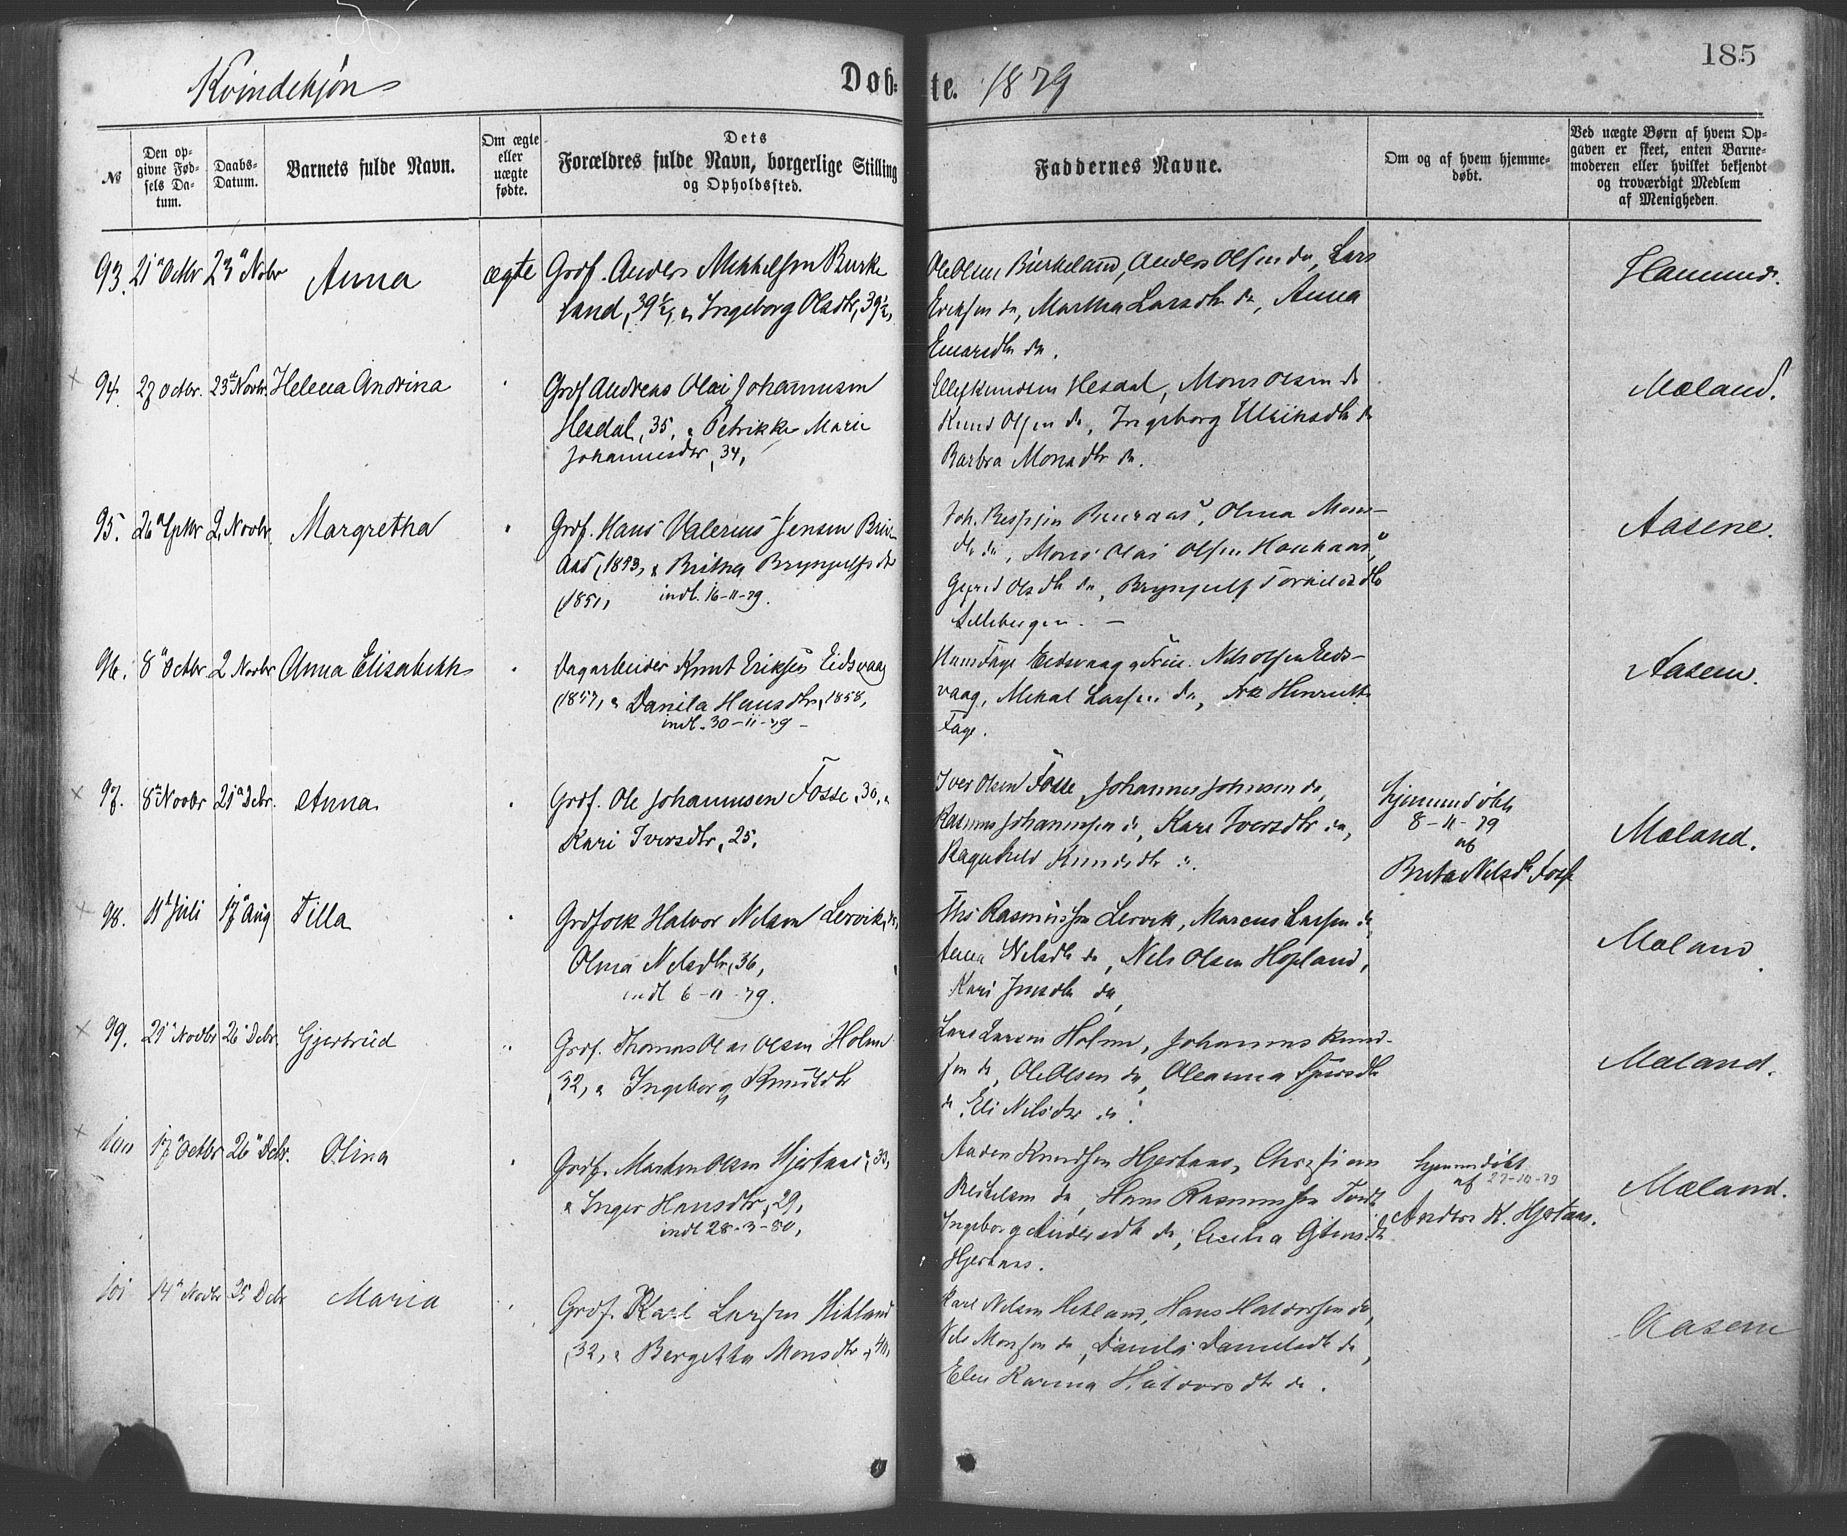 185
Kvindekjøn Døb- te. 1879
№
Den op-
givne Fød-
sels Da-
tum.
Daabs-
Datum.
Barnets fulde Navn.
Om ægte
eller
uægte
fødte.
Dets
Forældres fulde Navn, borgerlige Stilling
og Opholdssted.
Faddernes Navne.
Om og af hvem hjemme-
døbt.
Ved uægte Børn af hvem Op-
gaven er skeet, enten Barne-
moderen eller hvilket bekjendt
og troværdigt Medlem
af Menigheden.
93. 21 Octbr 23 Novbr Anna ægte Grdf. Anders Mikkelsen Birke
land, 39½, " Ingeborg Olsdtr, 39½,
Ole Olsen Birkeland, Anders Olsen do, Lars
Eriksen do, Martha Larsdtr do, Anna
Einarsdtr do.
94. 27 Octbr. 23 Novbr. Helena Andrina
Grdf Andreas Olai Johannesen
Hesdal, 35, " Petrikke Marie
Johannesdtr, 34,
Ellef Knudsen Hesdal, Mons Olsen do
Knud Olsen do, Ingeborg Ulriksdtr do
Barbra Monsdtr do.
Mæland.
95. 26 Septbr 2 Novbr. Margretha
Grdf. Hans Valerius Jensen
1843, " Brynjulfsdtr
(1851, indl. 16-11-79.
Olina Mons-
dtr do, Mons Olai Olsen
Olsdtr do, Brynjulf
Aasene.
96. 8 Octbr 2 Novbr Anna Elisabeth
Dagarbeider Knut Eriksen Eidsvaag
(1857, " Danila Hansdtr, 1858,
indl. 30-11-79 -
Hans Fage Eidsvaag Nils Olsen Eids-
vaag, Mikal Larsen do, Henriette
Fage.
Aasene.
97. 8 Novbr 21 Debr. Anna
Grdf. Ole Johannesen Fosse, 30, "
Kari Iversdtr, 25,
Iver Olsen Fosse, Johannes Johnsen do,
Rasmus Johannesen do, Kari Iversdtr do,
Ragnhild Knudsdtr do.
hjemmedøbt
8-11-79
af
Brita Nilsdtr Fosse
Mæland.
98. 11 Juli 17 Aug Tilla
Grdfolk Halvor Nilsen Lervik,
Olina Nilsdtr, 36,
indl 6-11-79.
Ths Rasmussen Lervik, Marcus Larsen do
Anna Nilsdtr do, Nils Olsen Hopland,
Kari Jensdtr do,
Mæland.
99. 21 Novbr 26 Debr. Gjertrud
Grdf. Thomas Olai Olsen Holme
32, " Ingeborg Knudsdtr
Lars Larsen Holme, Johannes Knud-
sen do, Ole Olsen do, Oleanna Iversdtr
do, Eli Nilsdtr do.
Mæland.
100 17 Octbr 26 Debr. Olina
Grdf. Morten Olsen Hjertaas, 33,
" Inger Hansdtr, 29,
indl 28-3-80,
Anders Knudsen Hjertaas, Christian
do, Hans Rasmussen
Ingeborg Andersdtr do,
Hjertaas.
hjemmedøbt
af 27-10-79
Anders K. Hjertaas.
Mæland.
101 14 Novbr 25 Debr Maria
Grdf. Karl Larsen Hikland
32, " Bergetha Monsdtr, 40,
Karl Nilsen Hikland, Hans Halvorsen do,
Nils Monsen do, Danila Danielsdtr do,
Elen Karina Halvorsdtr do.
Aasene